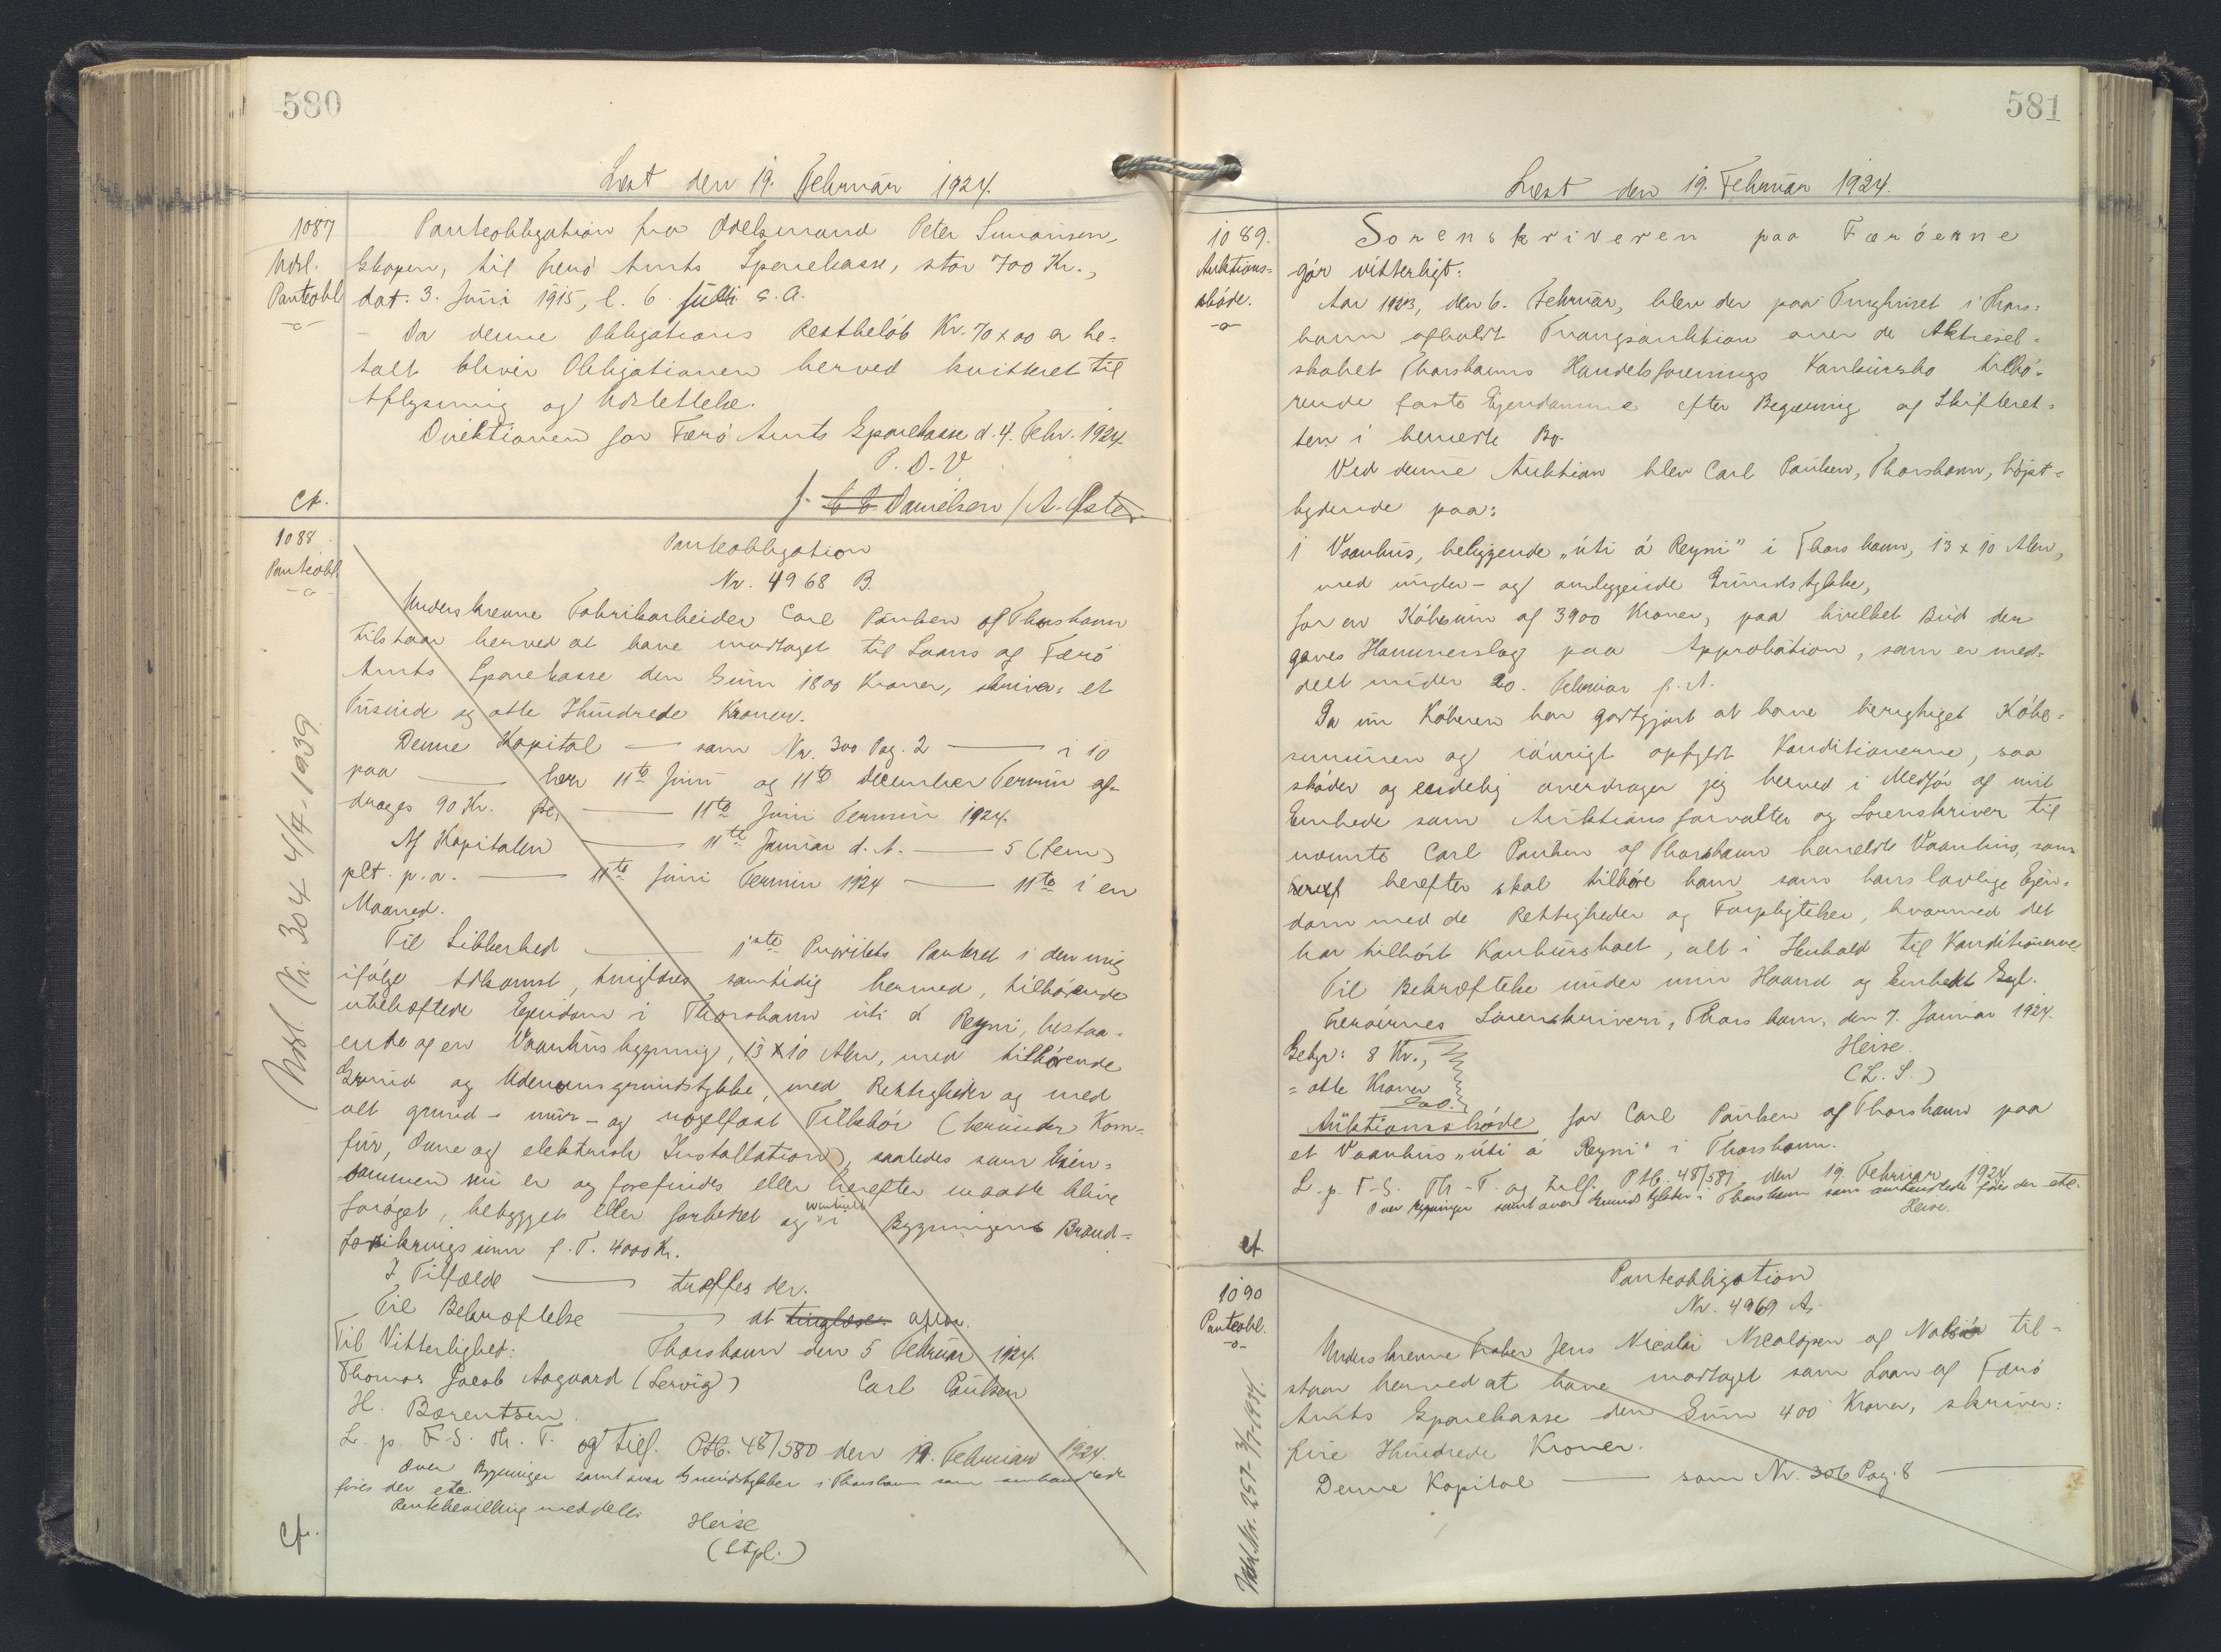 580
Læst den 19. Februar 1924.
1087
Udsl.
Panteobl.
Panteobligation fra Odelsmand Peter Simonsen,
Skopen, til Færö Amts Sparekasse, stor 700 Kr.,
dat. 3. Juni 1915, l. 6. Juli s. A.
Da denne Obligations Restbelöb Kr. 70 x 00 er be=
talt bliver Obligationen herved kvitteret til
Aflysning og Udslettelse.
Direktionen for Færö Amts Sparekasse d. 4. Febr. 1924.
P. D. V
J. Danielsen / A. Öster.
cf.
1088
Panteobl.
Panteobligation
Nr. 4968 B.
Underskrevne Fabrikarbeider Carl Paulsen af Thorshavn
tilstaar herved at have modtaget til Laans af Færö
Amts Sparekasse den Sum 1800 Kroner, skriver: et
Tusinde og otte Hundrede Kroner.
Denne Kapital — som Nr. 300 Pag. 2 — i 10
paa — hver 11te Juni og 11te December Termin af=
drages 90 Kr. — 11te Juni Termin 1924.
Af Kapitalen — 11te Januar d. A. — 5 (fem)
pCt. p. a. — 11te Juni Termin 1924 — 11te i en
Maaned.
Til Sikkerhed — 1ste Prioritets Panteret i den mig
ifölge Adkomst, tinglæst samtidig hermed, tilhörende
ubehæftede Ejendom i Thorshavn úti á Reyni, bestaa=
ende af en Vaanhusbygning, 13 x 10 Alen, med tilhörende
Grund og Udenomsgrundstykke, med Rettigheder og med
alt grund- mur- og nagelfast Tilbehör (herunder Kom=
fur, Ovne og elektrisk Installation), saaledes som Ejen=
dommen nu er og forefindes eller herefter maatte blive
foröget, bebygget eller forbedret og eventuelt i Bygningens Brand=
forsikringssum p. T. 4000 Kr.
I Tilfælde — træffes der.
Til Bekræftelse — at tinglæse
Til Vitterlighed: Thorshavn den 5 Februar 1924.
Thomas Jacob Aagaard (Servig) Carl Paulsen
H. Bærentsen.
L. p. F-S. Th. T. og Tilf. Ptb. 48/580 den 19. Februar 1924.
Over Bygninger samt over Grundstykker i Thorshavn som omhandlede
föres der etc.
Pantebevilling meddelt.
Heise
(Stpl.)
cf.
Udsl. Nr. 304 4/7-1939
581
Læst den 19. Februar 1924.
1089.
Auktions=
sköde.
Sorenskriveren paa Færöerne
gör vitterligt:
Aar 1923, den 6. Februar, blev der paa Tinghuset i Thors=
havn afholdt Tvangsauktion over de Aktiesel=
skabet Thorshavns Handelsforenings Konkursbo tilhö=
rende faste Ejendomme efter Begæring af Skifteret=
ten i bemeldte Bo.
Ved denne Auktion blev Carl Paulsen, Thorshavn, höjst=
bydende paa:
1 Vaanhus, beliggende „úti á Reyni" i Thorshavn, 13 x 10 Alen,
med under- og omliggende Grundstykke,
for en Köbesum af 3900 Kroner, paa hvilket Bud der
gaves Hammerslag paa Approbation, som er med=
delt under 20. Februar f. A.
Da nu Köberen har godtgjort at have berigtiget Köbe=
summen og iövrigt opfyldt Konditionerne, saa
sköder og endelig overdrager jeg herved i Medför af mit
Embede som Auktionsforvalter og Sorenskriver til
nævnte Carl Paulsen af Thorshavn bemeldte Vaanhus, som
herefter skal tilhöre ham som hans lovlige Ejen=
dom med de Rettigheder og Forpligtelser, hvormed det
har tilhört Konkursboet, alt i Henhold til Konditionerne
Til Bekræftelse under min Haand og Embeds Segl.
Færöernes Sorenskriveri, Thorshavn, den 7. Januar 1924.
Gebyr: 8 Kr., Heise.
= otte Kroner (L. S.)
Auktionssköde for Carl Paulsen af Thorshavn paa
et Vaanhus „úti á Reyni" i Thorshavn.
L. p. F-S. Th-T. og Tilf. Ptb. 48/581 den 19. Februar 1924
Over Bygninger samt over Grundstykker i Thorshavn som omhandlede föres der etc.
Heise.
cf.
1090
Panteobl.
Panteobligation
Nr. 4969 A.
Underskrevne Jens Nicolai Nicolajsen af Nolsö til=
staar herved at have modtaget som Laan af Færö
Amts Sparekasse den Sum 400 Kroner, skriver:
fire Hundrede Kroner.
Denne Kapital — som Nr. 306 Pag. 8 —
Udsl. Nr. 257-3/7-1934.